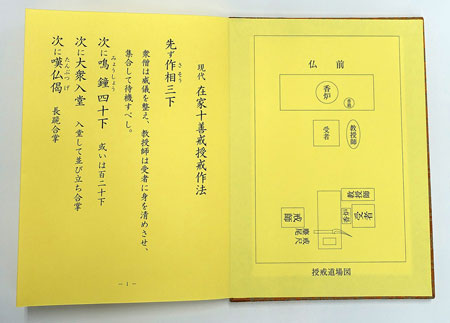 仏前
香炉
受者
教授師
教授師
受者
戒師
戒尺
授戒道場図
現代 在家十善戒授戒作法
先ず作相三下
さそう
衆僧は威儀を整え、教授師は受者に身を清めさせ、
集合して待機すべし。
次に鳴鐘四十下 或いは百二十下
みょうしょう
次に大衆入堂 入堂して並び立ち合掌
次に嘆仏偈 長跪合掌
たんぶつげ
－1－